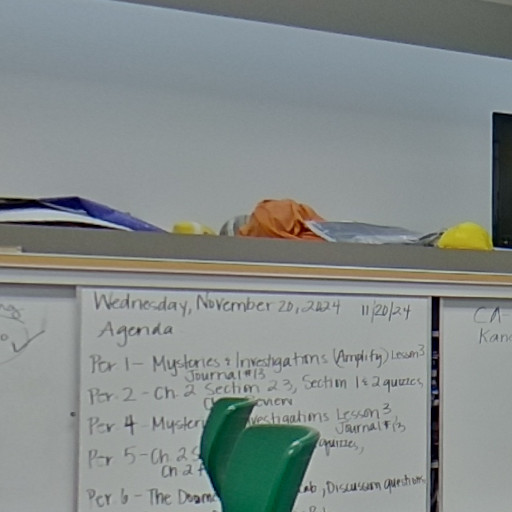 Wednesday, November 20, 2024 11/20/24
Agenda
Per 1 - Mysteries & Investigations (Amplify) Lesson 3
Journal #13
Per. 2 - Ch. 2 Section 2.3, Section 1 & 2 quizzes
Per. 4 - Myster vestigations Lesson 3,
Journal #13
Per. 5 - Ch. 2 S quizzes,
Ch 2
Per 6 - The Doom Lab, Discussion questions
CA-
Kan